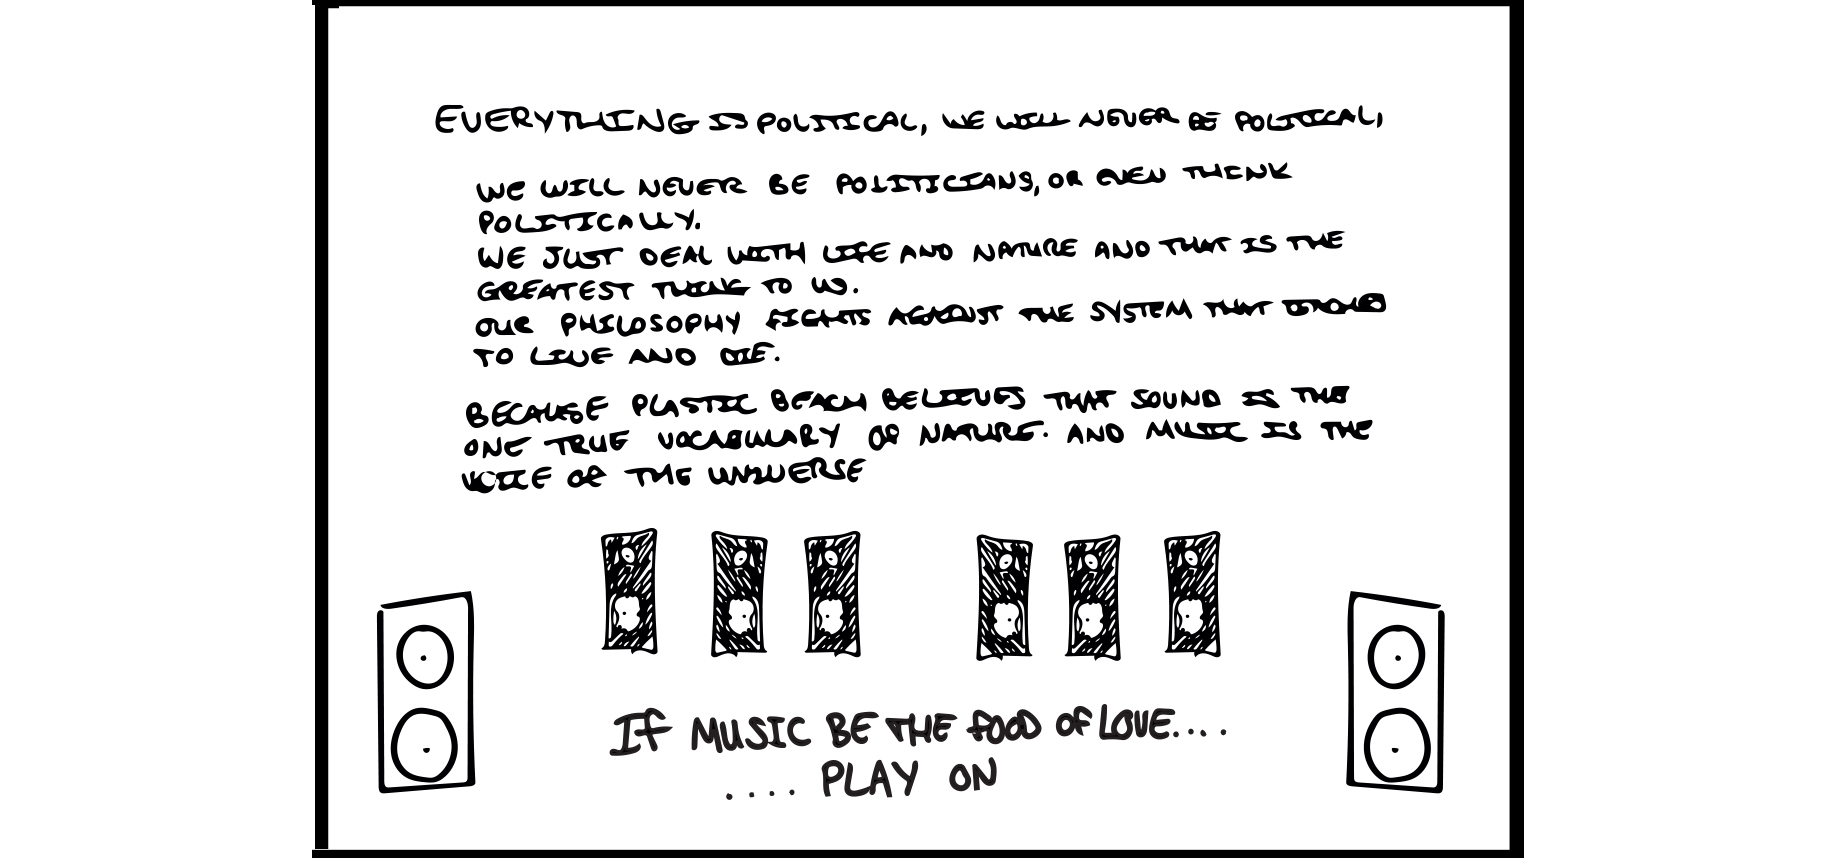 EVERYTHING IS POLITICAL, WE WILL NEVER BE POLITICAL,
WE WILL NEVER BE POLITICIANS, OR EVEN THINK
POLITICALLY.
WE JUST DEAL WITH LIFE AND NATURE AND THAT IS THE
GREATEST THING TO US.
OUR PHILOSOPHY FIGHTS AGAINST THE SYSTEM THAT
TO LIVE AND DIE.
BECAUSE PLASTIC BEACH BELIEVES THAT SOUND IS THE
ONE TRUE VOCABULARY OF NATURE. AND MUSIC IS THE
VOICE OF THE UNIVERSE
IF MUSIC BE THE FOOD OF LOVE....
.... PLAY ON